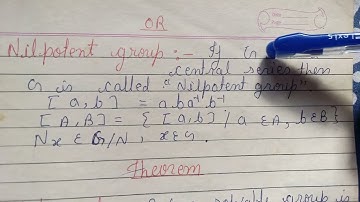 OR
Nilpotent group :- If G
central series then
G is called "Nilpotent group".
[a, b] = aba⁻¹b⁻¹
[A, B] = { [a, b] / a ∈ A, b ∈ B }
Nx ∈ G/N, x ∈ G.
Theorem
group is